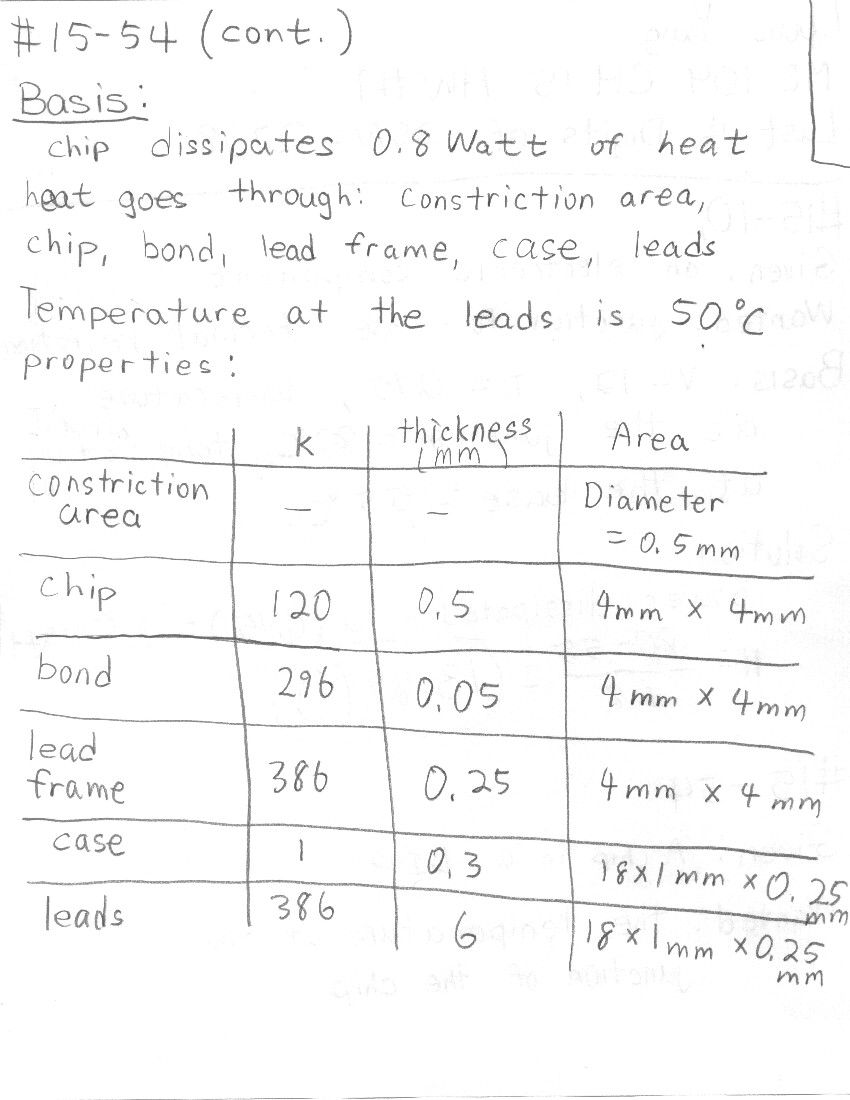 #15-54 (cont.)
Basis:
chip dissipates 0.8 Watt of heat
heat goes through: constriction area,
chip, bond, lead frame, case, leads
Temperature at the leads is 50°C
properties:
k thickness (mm) Area
constriction area — — Diameter = 0.5mm
chip 120 0.5 4mm × 4mm
bond 296 0.05 4mm × 4mm
lead frame 386 0.25 4mm × 4mm
case 1 0.3 18×1mm × 0.25 mm
leads 386 6 18×1mm × 0.25 mm